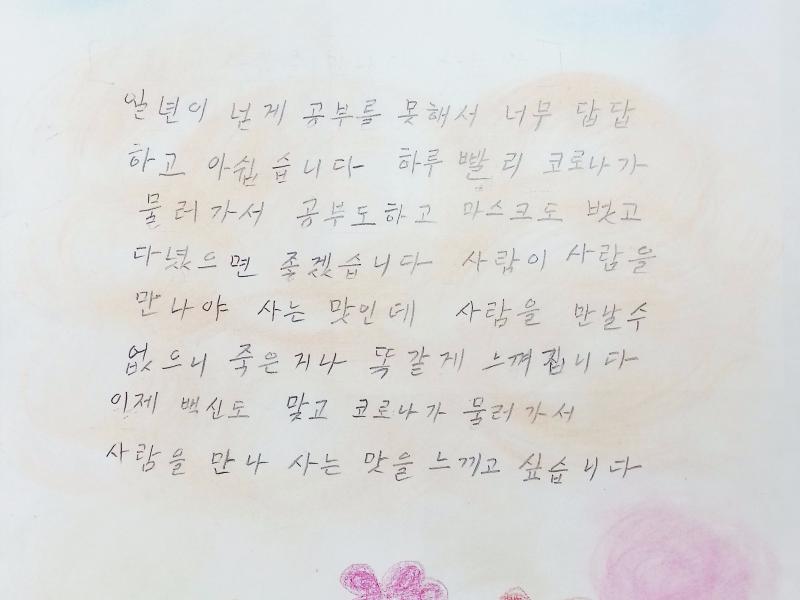 일년이 넘게 공부를 못해서 너무 답답
하고 아쉽습니다 하루 빨리 코로나가
물러가서 공부도하고 마스크도 벗고
다녔으면 좋겠습니다 사람이 사람을
만나야 사는 맛인데 사람을 만날수
없으니 죽은지나 똑같게 느껴집니다
이제 백신도 맞고 코로나가 물러가서
사람을 만나 사는 맛을 느끼고 싶습니다